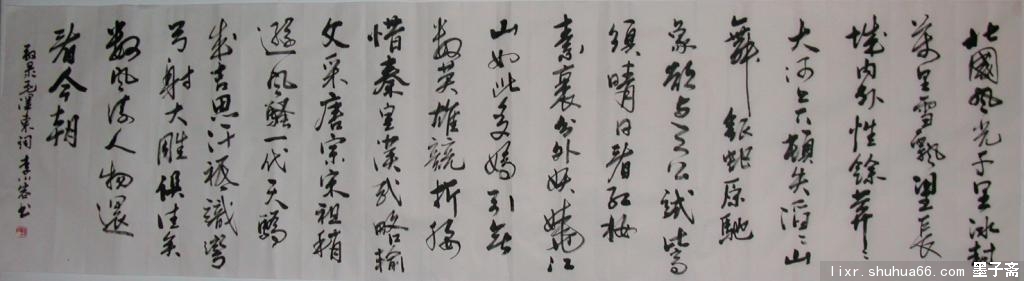 北國風光千里冰封
萬里雪飄望長
城内外惟餘莽〻
大河上下頓失滔〻山
舞銀蛇原馳
象欲与天公試比高
須晴日看红妆
素裹分外妖嬈江
山如此多嬌引無
數英雄競折腰
惜秦皇漢武略輸
文采唐宗宋祖稍
遜風騷一代天驕
成吉思汗祗識彎
弓射大雕俱往矣
數風流人物還
看今朝
录毛澤東詞 李 书
lixr.shuhua66.com 墨子斋